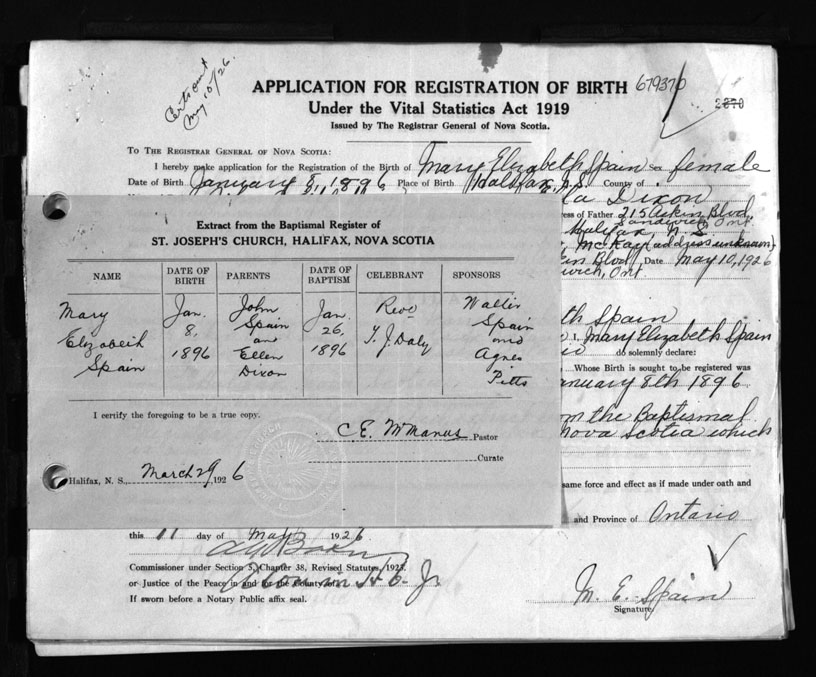 Certs out
May 10/26.
APPLICATION FOR REGISTRATION OF BIRTH 679370
Under the Vital Statistics Act 1919 2870
Issued by The Registrar General of Nova Scotia.
TO THE REGISTRAR GENERAL OF NOVA SCOTIA:
I hereby make application for the Registration of the Birth of Mary Elizabeth Spain Sex female
Date of Birth January 8, 1896 Place of Birth Halifax, N.S. County of
la Dixon
ess of Father 215 Askin Blvd,
Sandwich, Ont
Halifax, N. S.
McKay (address unknown)
kin Blvd Date May 10, 1926
wich, Ont.
Extract from the Baptismal Register of
ST. JOSEPH'S CHURCH, HALIFAX, NOVA SCOTIA
NAME DATE OF BIRTH PARENTS DATE OF BAPTISM CELEBRANT SPONSORS
Mary Jan. John Jan. Revd Walter
Elizabeth 8, Spain 26, T. J. Daly Spain
Spain 1896 and 1896 and
Ellen Agnes
Dixon Pitts
I certify the foregoing to be a true copy.
C. E. McManus Pastor
Curate
Halifax, N. S., March 29, 1926
th Spain
I, Mary Elizabeth Spain
do solemnly declare:
Whose Birth is sought to be registered was
anuary 8th 1896
om the Baptismal
Nova Scotia which
same force and effect as if made under oath and
and Province of Ontario
this 11 day of May 1926
Commissioner under Section 5, Chapter 38, Revised Statutes, 1923,
or Justice of the Peace in and for the County of
If sworn before a Notary Public affix seal.
M. E. Spain
Signature